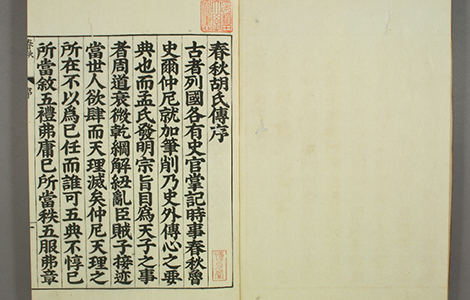 春秋胡氏傳序
古者列國各有史官掌記時事春秋魯
史爾仲尼就加筆削乃史外傳心之要
典也而孟氏發明宗旨目為天子之事
者周道衰微乾綱解紐亂臣賊子接迹
當世人欲肆而天理滅矣仲尼天理之
所在不以為己任而誰可五典不惇己
所當敘五禮弗庸己所當秩五服弗章
春秋
序
一